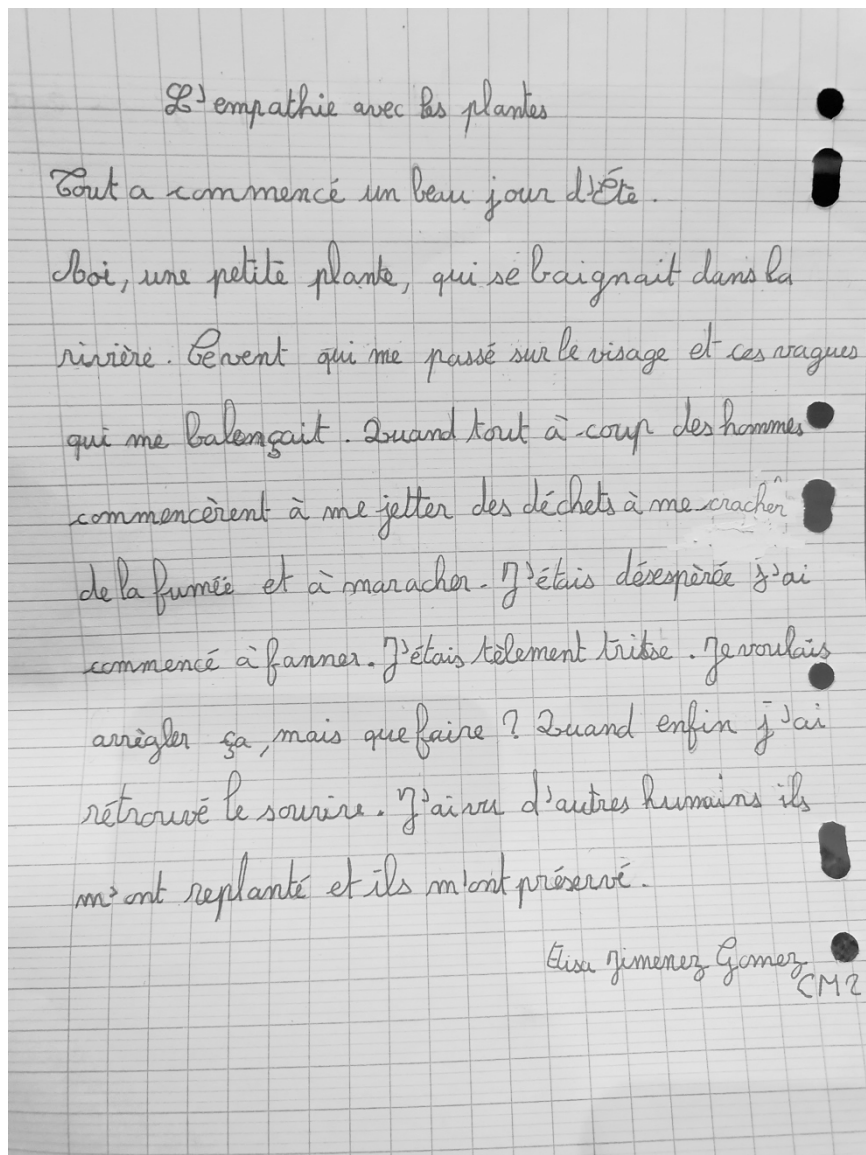 L'empathie avec les plantes
Tout a commencé un beau jour d'Éte.
Moi, une petite plante, qui se baignait dans la
rivière. Le vent qui me passé sur le visage et ces vagues
qui me balençait. Quand tout à coup des hommes
commencèrent à me jetter des déchets à me cracher
de la fumée et à maracher. J'étais désespèrée j'ai
commencé à fanner. J'étais tèlement tritse. Je voulais
arrègler ça, mais que faire ? Quand enfin j'ai
rétrouvé le sourire. J'ai vu d'autres humains ils
m'ont replanté et ils m'ont préservé.
Elisa Jimenez Gomez
CM2